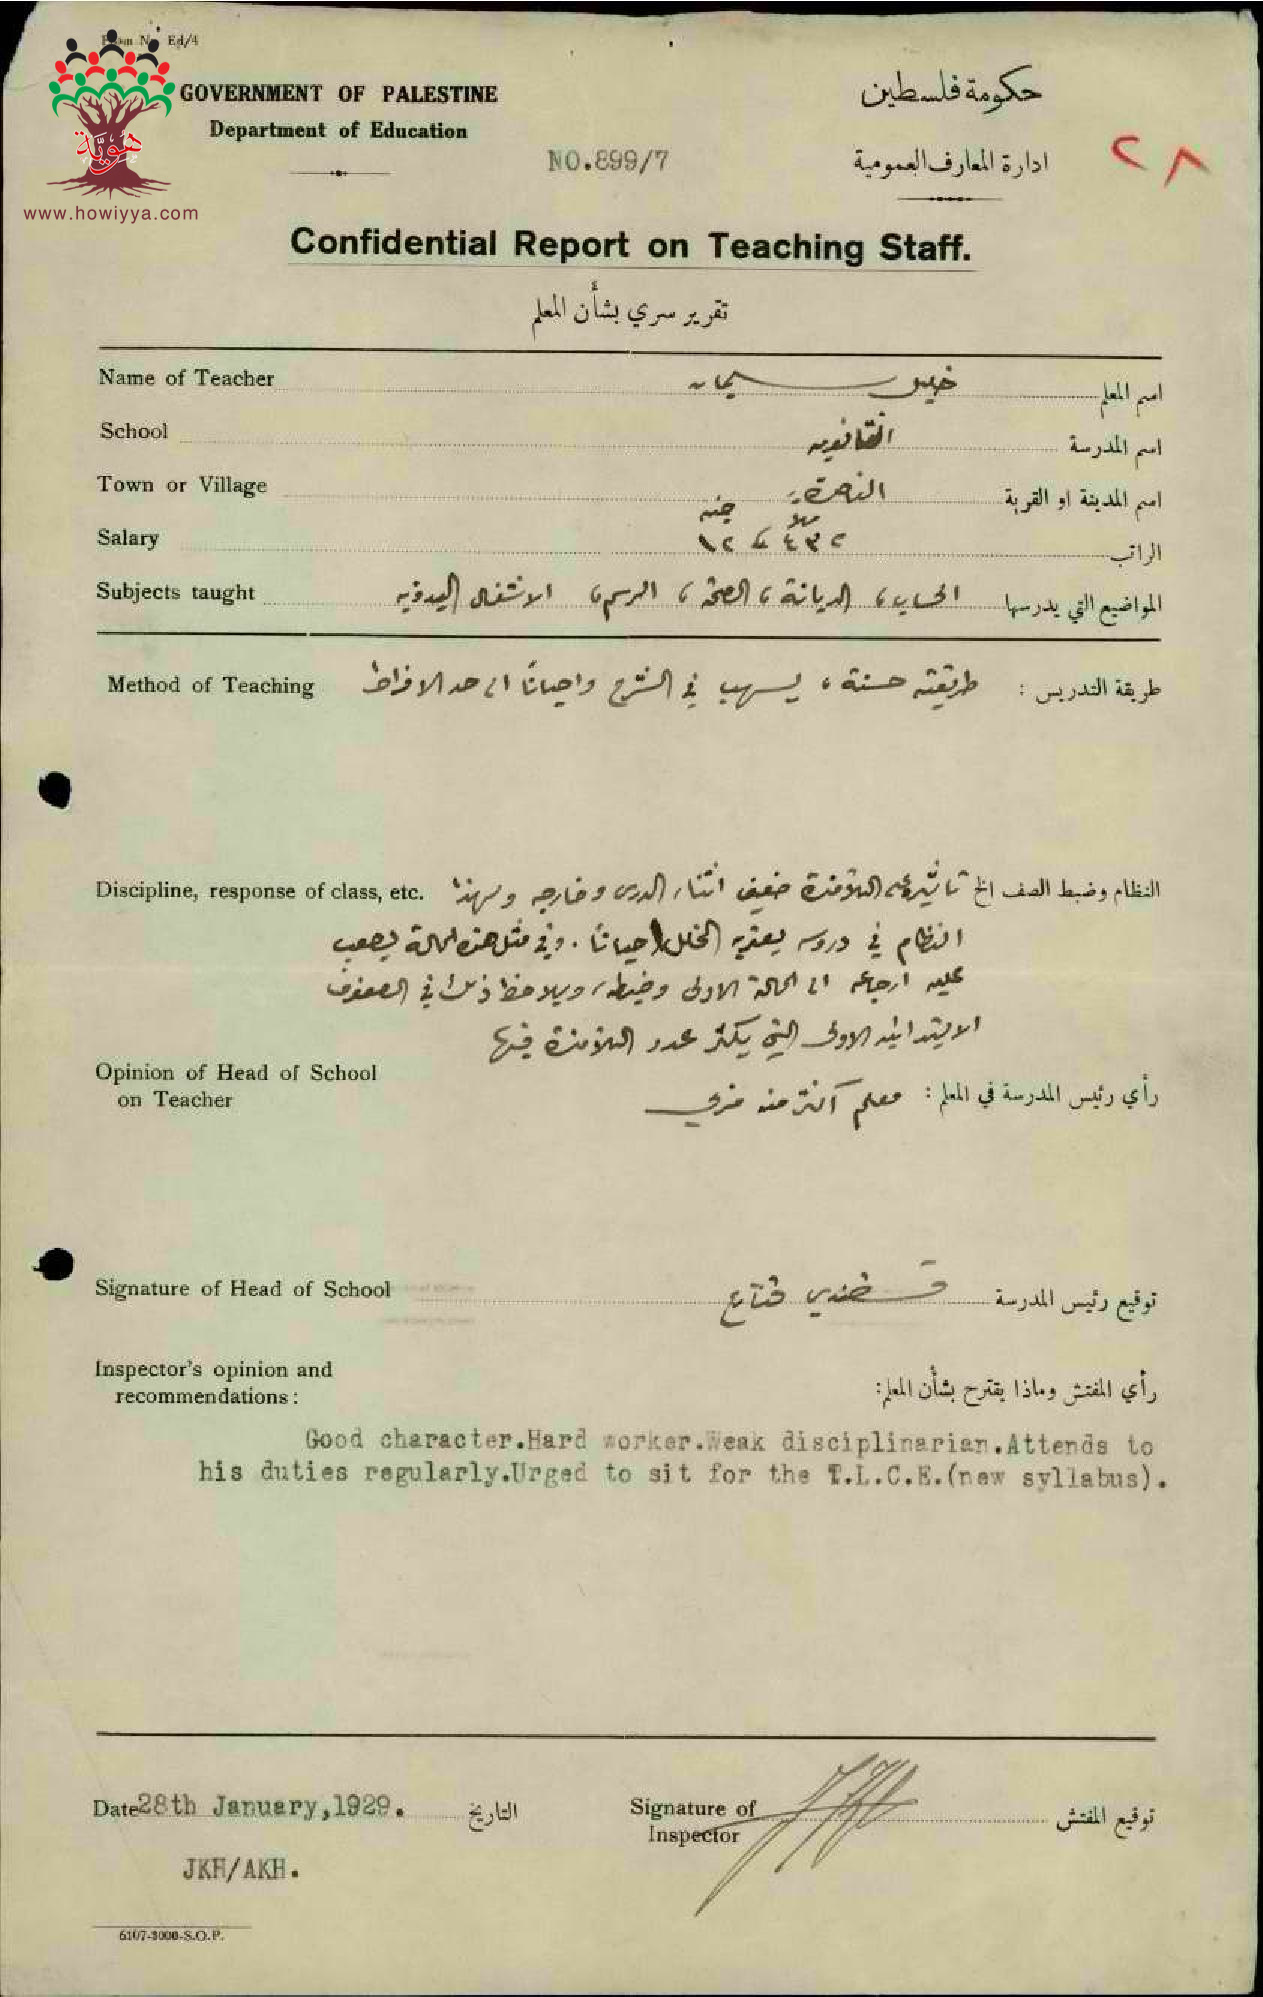 Ed/4
هوية
www.howiyya.com
GOVERNMENT OF PALESTINE
Department of Education
حكومة فلسطين
ادارة المعارف العمومية
NO.899/7
٢٨
Confidential Report on Teaching Staff.
تقرير سري بشأن المعلم
Name of Teacher خليل سليمان اسم المعلم
School الثانوية اسم المدرسة
Town or Village الناصرة اسم المدينة او القرية
جنيه ملا
Salary ٤٣٢ ١٢ الراتب
Subjects taught الحساب، الديانة، الصحة، الرسم، الاشغال اليدوية المواضيع التي يدرسها
Method of Teaching طريقة التدريس : طريقته حسنة، يسهب في الشرح واحياناً الى حد الافراط
Discipline, response of class, etc. النظام وضبط الصف الخ تأثيره على التلامذة ضعيف اثناء الدرس وخارجه ولهذا
النظام في دروسه يعتريه الخلل احياناً. وفي مثل هذه الحالة يصعب
عليه ارجاعه الى الحالة الاولى وضبطه، ويلاحظ ذلك في الصفوف
الابتدائية الاولى التي يكثر عدد التلامذة فيها
Opinion of Head of School
on Teacher رأي رئيس المدرسة في المعلم : معلم اكثر منه مربي
Signature of Head of School توقيع رئيس المدرسة
Inspector's opinion and
recommendations : رأي المفتش وماذا يقترح بشأن المعلم:
Good character.Hard worker.Weak disciplinarian.Attends to
his duties regularly.Urged to sit for the T.L.C.E.(new syllabus).
Date 28th January,1929. التاريخ
Signature of
Inspector توقيع المفتش
JKH/AKH.
6107-3000-S.O.P.